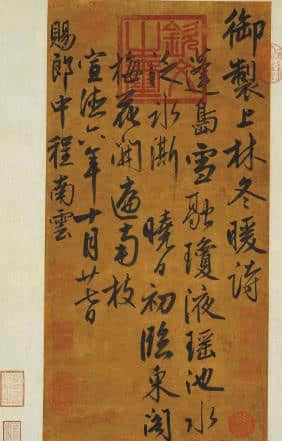 御製上林冬暖詩
蓬島雪融瓊液瑤池水
泛氷澌曉日初臨東閣
梅花開遍南枝
宣德六年十月廿日
賜郎中程南雲